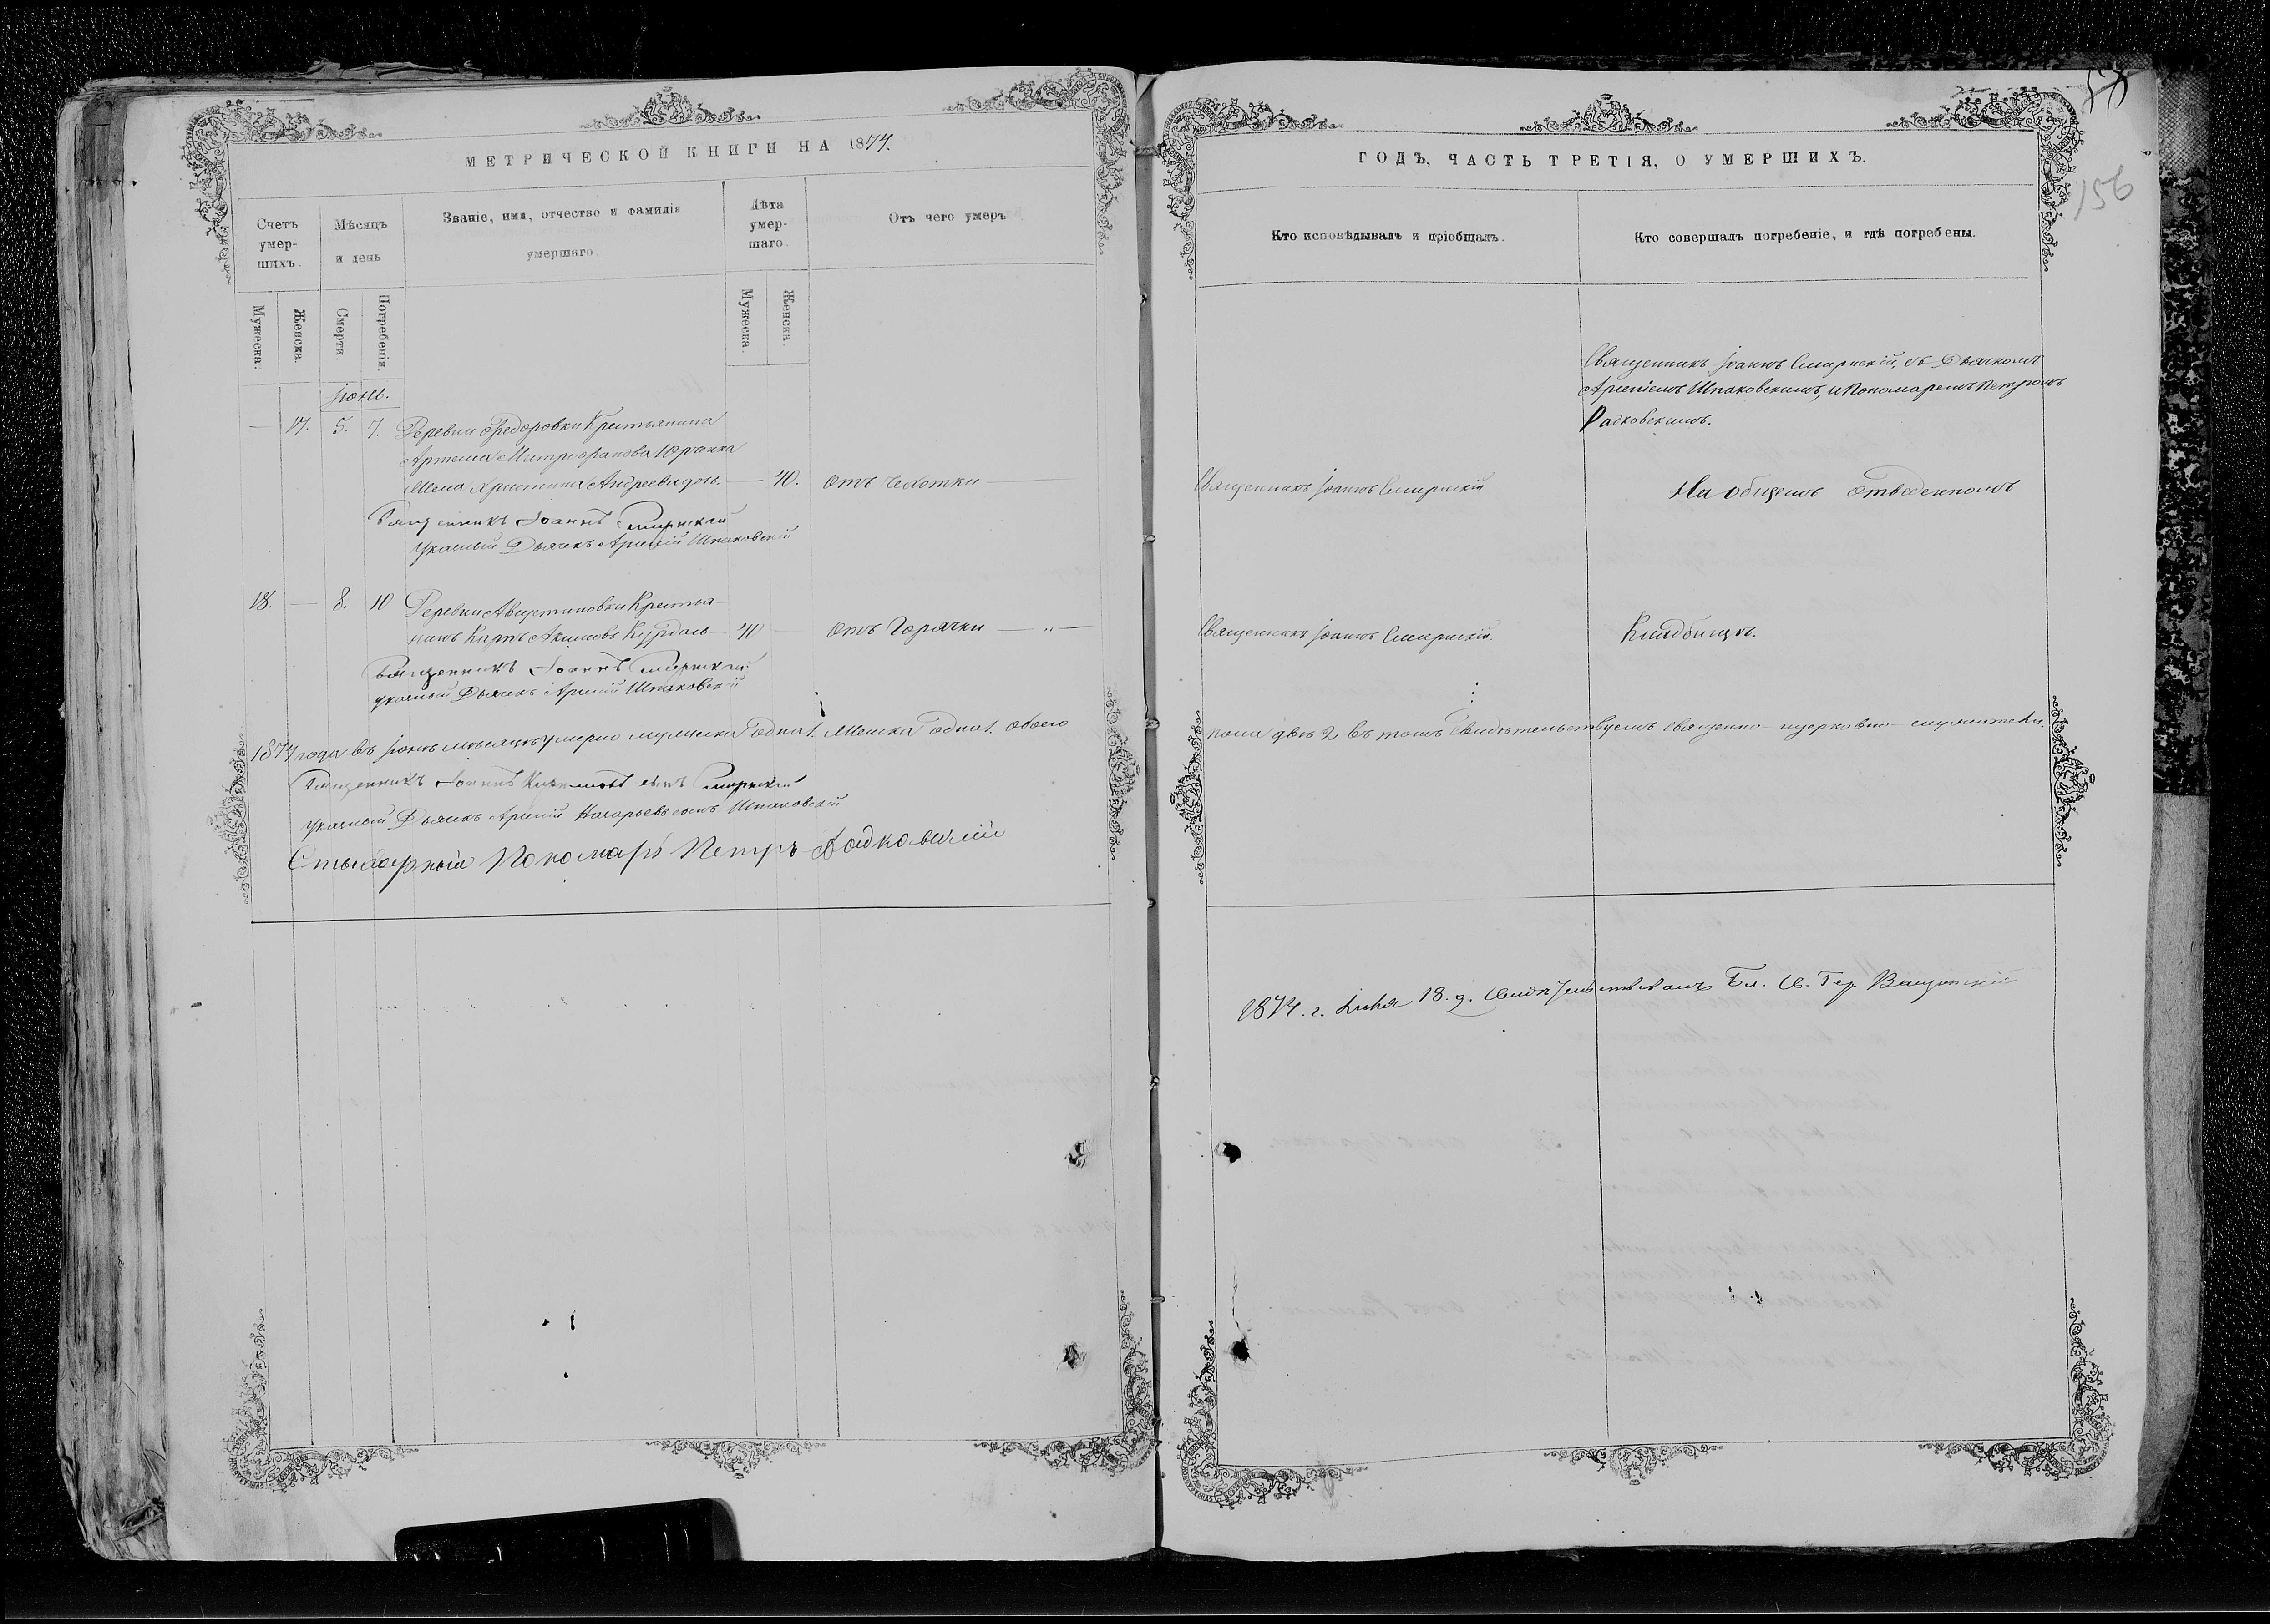 МЕТРИЧЕСКОЙ КНИГИ НА 1874.
Счетъ умер-шихъ.
Мѣсяцъ и день
Званіе, имя, отчество и фамилія умершаго
Лѣта умер-шаго.
Отъ чего умеръ
Мужеска.
Женска.
Смерти.
Погребенія.
Мужеска.
Женска.
Іюнь.
— 17. 5. 7. Деревни Федоровки Крестьянина
Артема Митрофанова Юрчика
Жена Христина Андреева дочь. — 40. Отъ Чахотки
Священникъ Іоаннъ Смирнскій
Указный Дьячекъ Арсеній Шпаковскій
18. — 8. 10 Деревни Августиновки Крестья-
нинъ Карпъ Акимовъ 40 Отъ Горячки — „ —
Священникъ Іоаннъ Смирнскій
Указный Дьячекъ Арсеній Шпаковскій
1874 года въ Іюнѣ мѣсяцѣ умерло мужеска одна 1. Женска одна 1. Обоего
Священникъ Іоаннъ сынъ Смирнскій
Указный Дьячекъ Арсеній Назарьевъ сынъ Шпаковскій
Стихарный Пономарь Петръ Радковскій
57
156
ГОДЪ, ЧАСТЬ ТРЕТІЯ, О УМЕРШИХЪ.
Кто исповѣдывалъ и пріобщалъ.
Кто совершалъ погребеніе, и гдѣ погребены.
Священникъ Іоаннъ Смирнскій, съ Дьячкомъ
Арсеніемъ Шпаковскимъ, и Пономаремъ Петромъ
Радковскимъ.
Священникъ Іоаннъ Смирнскій На общемъ отведенномъ
Священникъ Іоаннъ Смирнскій Кладбищѣ.
пола двѣ 2 въ томъ Свидѣтельствуемъ священно-церковно-служители.
1874. г. 18. д. Свидѣтельствовалъ Бл. Св.